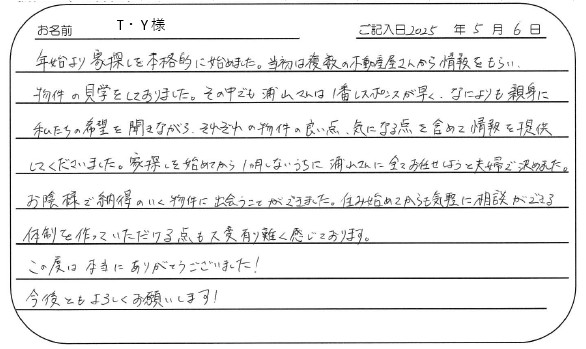 お名前 T・Y様 ご記入日2025 年 5 月 6 日
年始より家探しを本格的に始めました。当初は複数の不動産屋さんから情報をもらい、
物件の見学をしておりました。その中でも浦山さんは1番レスポンスが早く、なによりも親身に
私たちの希望を聞きながら、それぞれの物件の良い点、気になる点を含めて情報を提供
してくださいました。家探しを始めてから1ヶ月しないうちに浦山さんに全てお任せしようと夫婦で決めました。
お陰様で納得のいく物件に出会うことができました。住み始めてからも気軽に相談ができる
体制を作っていただける点も大変有り難く感じております。
この度は本当にありがとうございました!
今後ともよろしくお願いします!